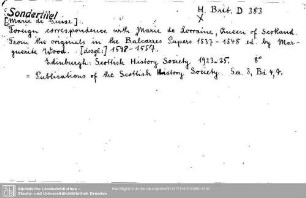 Sonderttitel
H. Brit. D 383
X
[Marie de Guise].
Foreign correspondence with Marie de Lorraine, Queen of Scotland.
From the originals in the Balcarres Papers 1537-1548 ed by Mar-
guerite Wood. [dsgl:] 1548-1557.
Edinburgh: Scottish History Society 1923-25. 8°
= Publications of the Scottish History Society. Sa. 3, Bd 4,7.